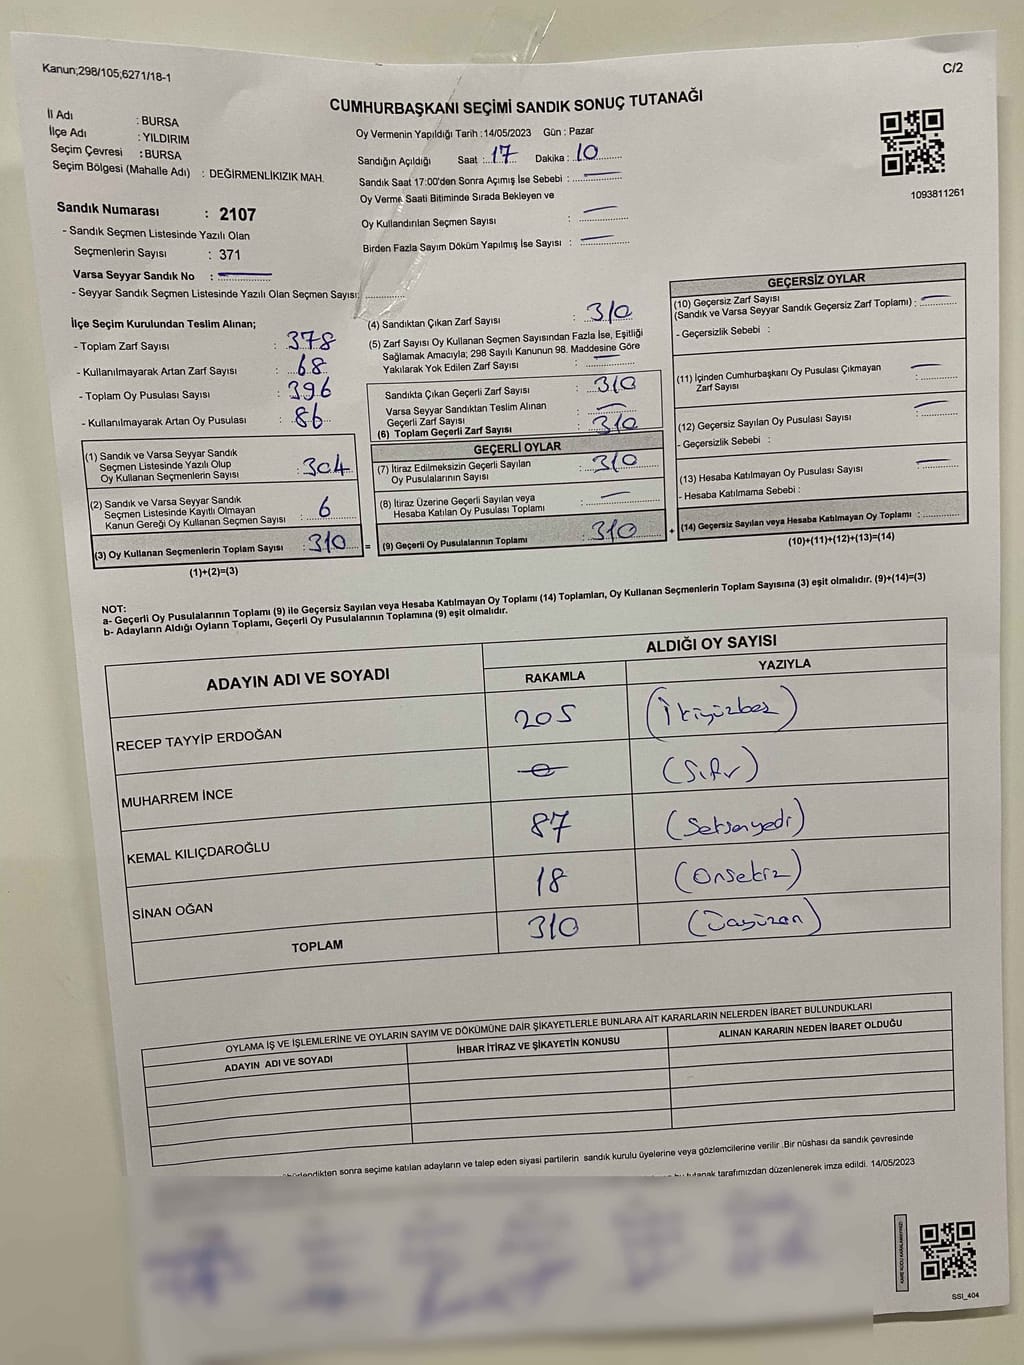 Kanun;298/105;6271/18-1
C/2
CUMHURBAŞKANI SEÇİMİ SANDIK SONUÇ TUTANAĞI
İl Adı : BURSA
İlçe Adı : YILDIRIM
Seçim Çevresi : BURSA
Seçim Bölgesi (Mahalle Adı) : DEĞİRMENLİKIZIK MAH.
Oy Vermenin Yapıldığı Tarih :14/05/2023 Gün : Pazar
Sandığın Açıldığı Saat : 17 Dakika : 10
Sandık Saat 17:00'den Sonra Açımış İse Sebebi : —
Oy Verme Saati Bitiminde Sırada Bekleyen ve
Oy Kullandırılan Seçmen Sayısı : —
Birden Fazla Sayım Döküm Yapılmış İse Sayısı : —
1093811261
Sandık Numarası : 2107
- Sandık Seçmen Listesinde Yazılı Olan
Seçmenlerin Sayısı : 371
Varsa Seyyar Sandık No : —
- Seyyar Sandık Seçmen Listesinde Yazılı Olan Seçmen Sayısı:
İlçe Seçim Kurulundan Teslim Alınan;
- Toplam Zarf Sayısı : 378
- Kullanılmayarak Artan Zarf Sayısı : 68
- Toplam Oy Pusulası Sayısı : 396
- Kullanılmayarak Artan Oy Pusulası : 86
(1) Sandık ve Varsa Seyyar Sandık
Seçmen Listesinde Yazılı Olup
Oy Kullanan Seçmenlerin Sayısı : 304
(2) Sandık ve Varsa Seyyar Sandık
Seçmen Listesinde Kayıtlı Olmayan
Kanun Gereği Oy Kullanan Seçmen Sayısı : 6
(3) Oy Kullanan Seçmenlerin Toplam Sayısı : 310 =
(1)+(2)=(3)
(4) Sandıktan Çıkan Zarf Sayısı : 310
(5) Zarf Sayısı Oy Kullanan Seçmen Sayısından Fazla İse, Eşitliği
Sağlamak Amacıyla; 298 Sayılı Kanunun 98. Maddesine Göre
Yakılarak Yok Edilen Zarf Sayısı : —
Sandıkta Çıkan Geçerli Zarf Sayısı : 310
Varsa Seyyar Sandıktan Teslim Alınan
Geçerli Zarf Sayısı : —
(6) Toplam Geçerli Zarf Sayısı : 310
GEÇERLİ OYLAR
(7) İtiraz Edilmeksizin Geçerli Sayılan
Oy Pusulalarının Sayısı : 310
(8) İtiraz Üzerine Geçerli Sayılan veya
Hesaba Katılan Oy Pusulası Toplamı : —
(9) Geçerli Oy Pusulalarının Toplamı : 310 +
GEÇERSİZ OYLAR
(10) Geçersiz Zarf Sayısı
(Sandık ve Varsa Seyyar Sandık Geçersiz Zarf Toplamı) : —
- Geçersizlik Sebebi :
(11) İçinden Cumhurbaşkanı Oy Pusulası Çıkmayan
Zarf Sayısı : —
(12) Geçersiz Sayılan Oy Pusulası Sayısı : —
- Geçersizlik Sebebi :
(13) Hesaba Katılmayan Oy Pusulası Sayısı : —
- Hesaba Katılmama Sebebi :
(14) Geçersiz Sayılan veya Hesaba Katılmayan Oy Toplamı :
(10)+(11)+(12)+(13)=(14)
NOT:
a- Geçerli Oy Pusulalarının Toplamı (9) ile Geçersiz Sayılan veya Hesaba Katılmayan Oy Toplamı (14) Toplamları, Oy Kullanan Seçmenlerin Toplam Sayısına (3) eşit olmalıdır. (9)+(14)=(3)
b- Adayların Aldığı Oyların Toplamı, Geçerli Oy Pusulalarının Toplamına (9) eşit olmalıdır.
ADAYIN ADI VE SOYADI
ALDIĞI OY SAYISI
RAKAMLA YAZIYLA
RECEP TAYYİP ERDOĞAN 205 (İkiyüzbeş)
MUHARREM İNCE 0 (Sıfır)
KEMAL KILIÇDAROĞLU 87 (Seksenyedi)
SİNAN OĞAN 18 (Onsekiz)
TOPLAM 310 (Üçyüzon)
OYLAMA İŞ VE İŞLEMLERİNE VE OYLARIN SAYIM VE DÖKÜMÜNE DAİR ŞİKAYETLERLE BUNLARA AİT KARARLARIN NELERDEN İBARET BULUNDUKLARI
ADAYIN ADI VE SOYADI İHBAR İTİRAZ VE ŞİKAYETİN KONUSU ALINAN KARARIN NEDEN İBARET OLDUĞU
sonra seçime katılan adayların ve talep eden siyasi partilerin sandık kurulu üyelerine veya gözlemcilerine verilir .Bir nüshası da sandık çevresinde
tutanak tarafımızdan düzenlenerek imza edildi. 14/05/2023
KARE KODU KARALAMAYINIZ!
SSI_404